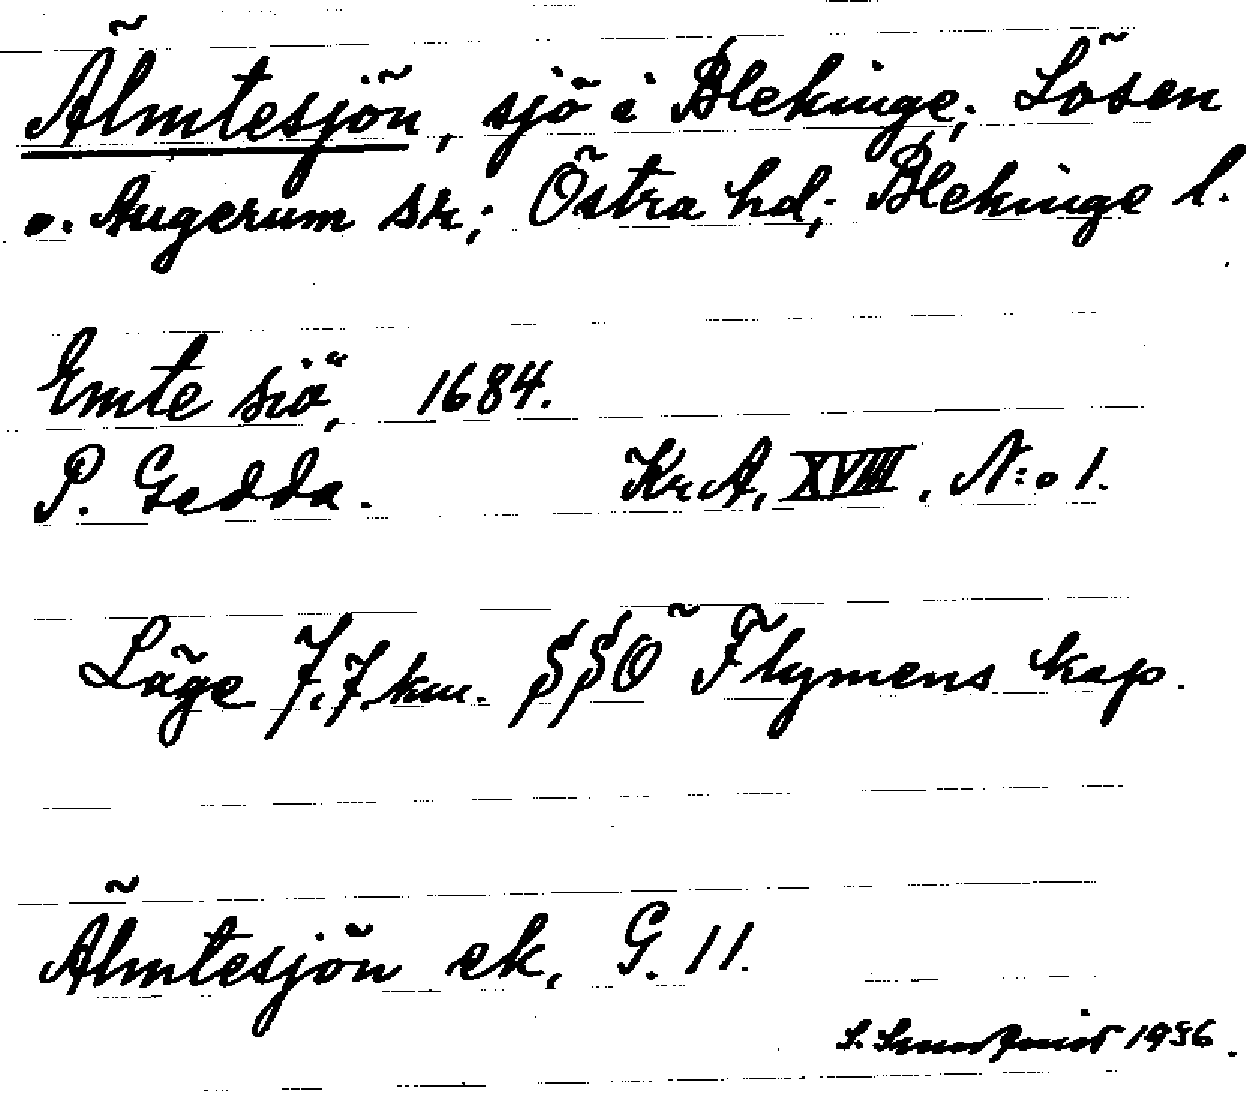 Älmtesjön, sjö i Blekinge; Lösen
o. Augerum sk; Östra hd; Blekinge l.
Emte siö, 1684.
P. Gedda. Kr.A, XVIII, N:o 1.
Läge 7,7 km. SSÖ Flymens kap.
Älmtesjön ek, G. 11.
1936.